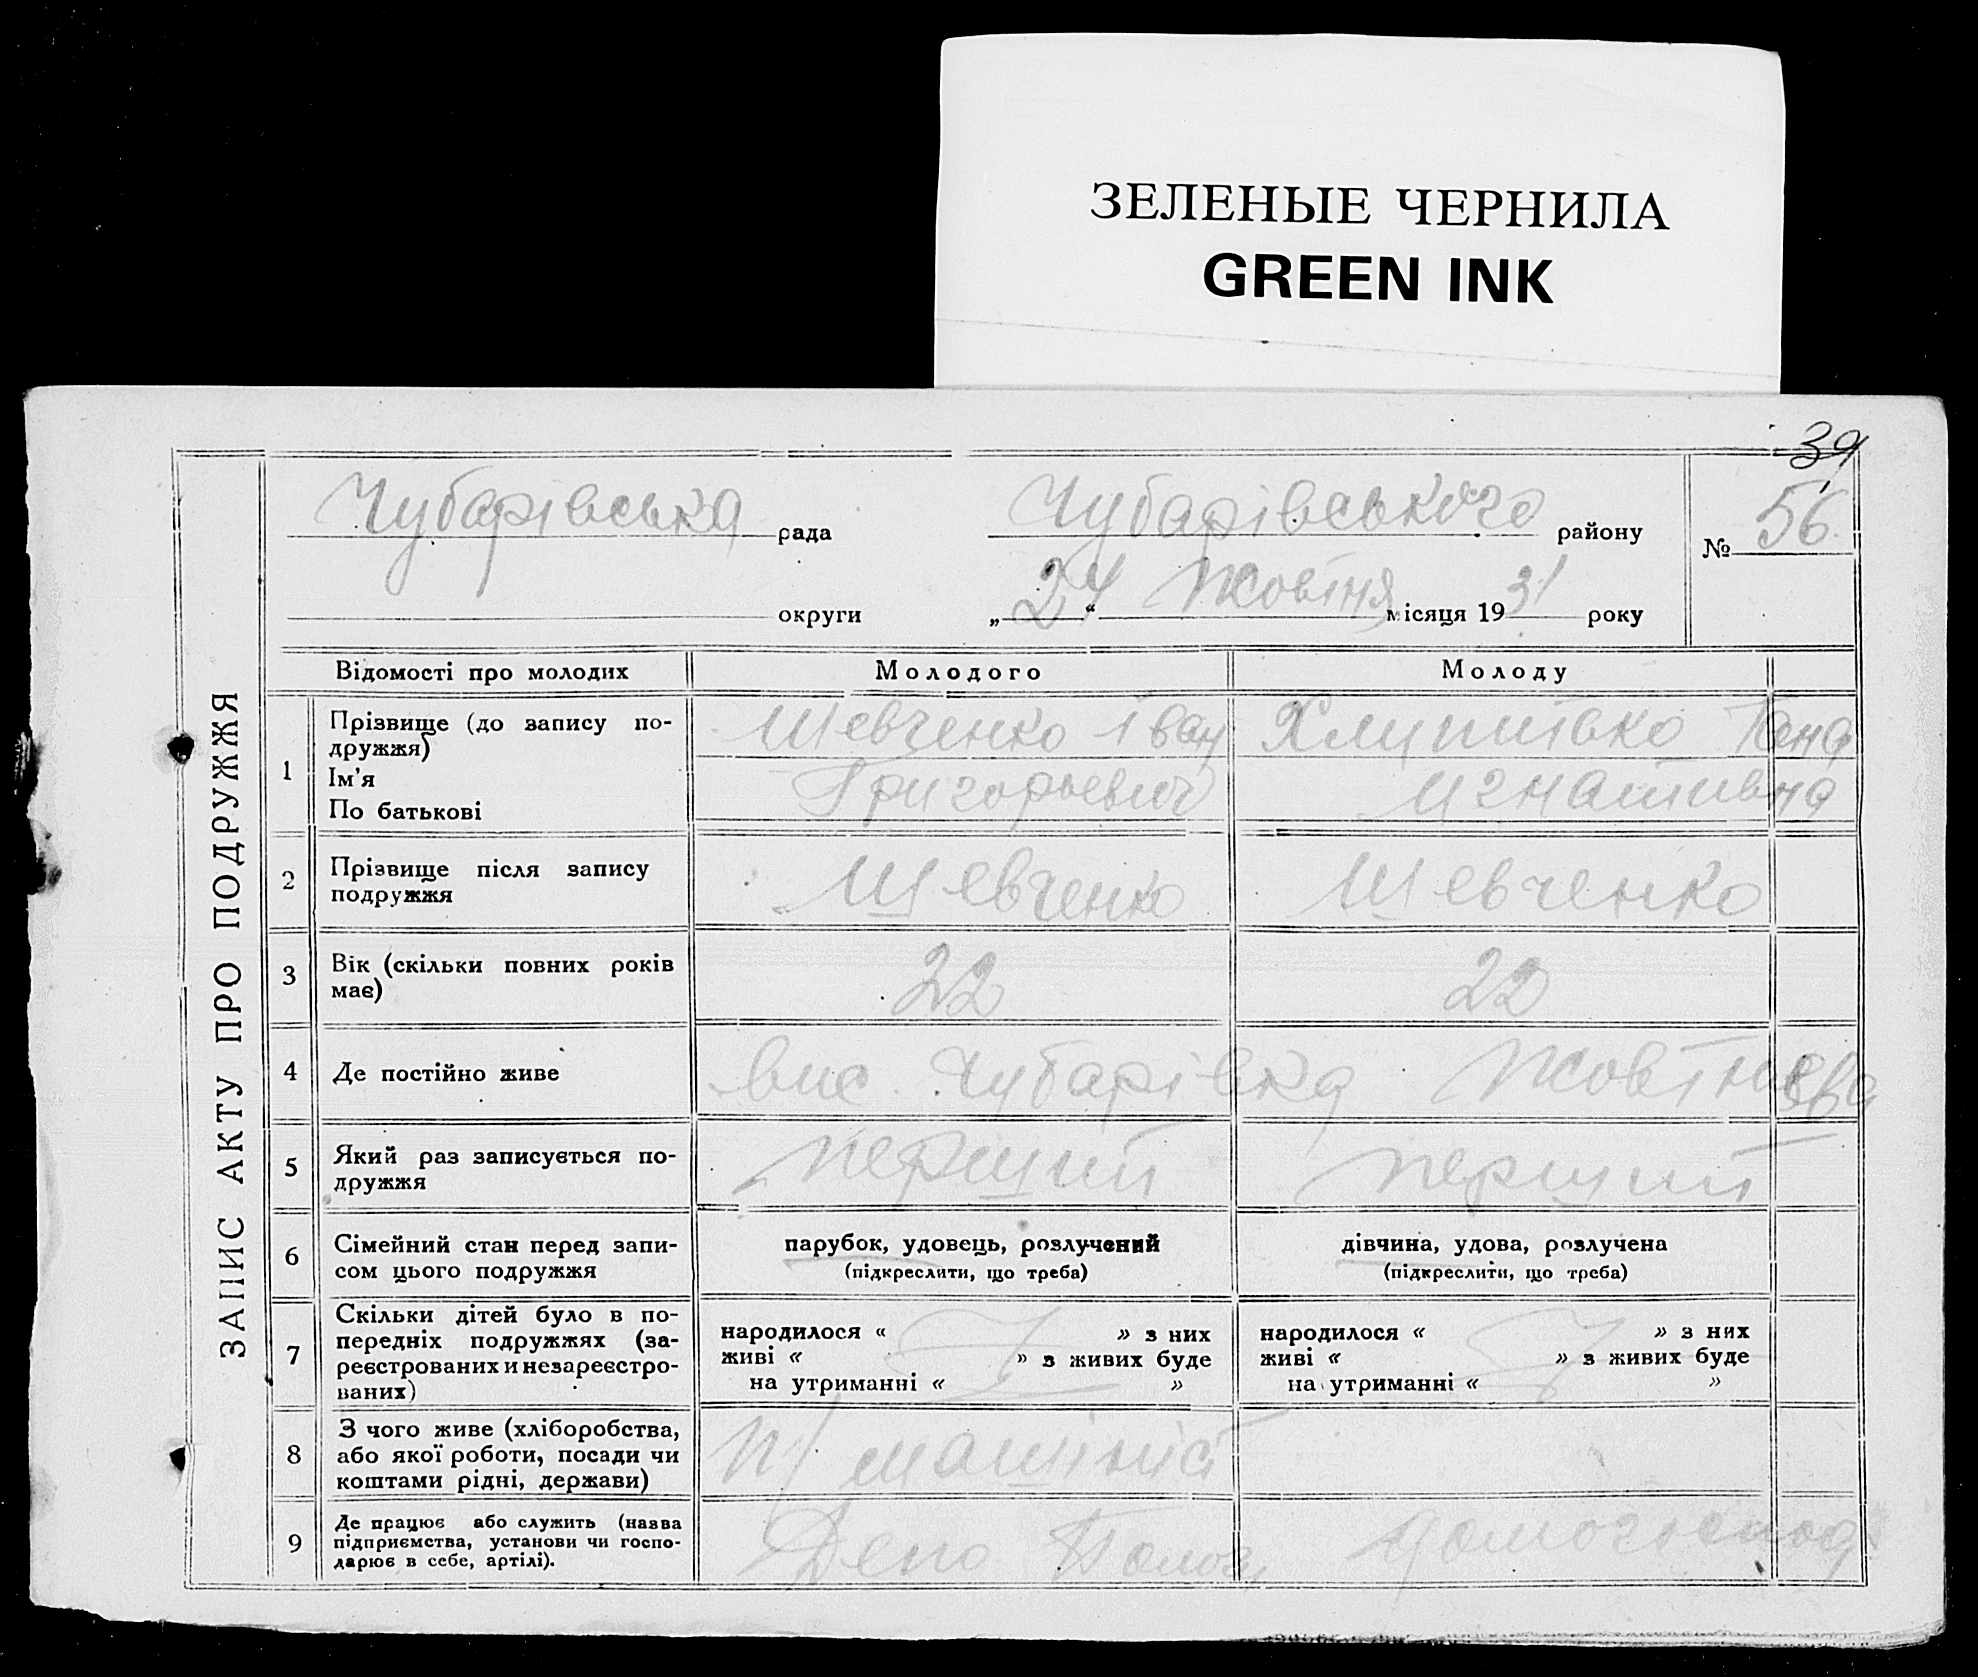 ЗЕЛЕНЫЕ ЧЕРНИЛА
GREEN INK
39
ЗАПИС АКТУ ПРО ПОДРУЖЖЯ
Чубарівська рада Чубарівського району № 56.
округи „24“ Жовтня місяця 1931 року
Відомості про молодих Молодого Молоду
1 Прізвище (до запису по-
дружжя)
Ім'я
По батькові
Шевченко Іван
Григорьевич
Гана
2 Прізвище після запису
подружжя
Шевченко Шевченко
3 Вік (скільки повних років
має)
22 22
4 Де постійно живе
вис. Чубарівка
5 Який раз записується по-
дружжя
перший перший
6 Сімейний стан перед запи-
сом цього подружжя
парубок, удовець, розлучений
(підкреслити, що треба)
дівчина, удова, розлучена
(підкреслити, що треба)
7 Скільки дітей було в по-
передніх подружжях (за-
реєстрованих и незареєстро-
ваних)
народилося « » з них
живі « » з живих буде
на утриманні « »
народилося « » з них
живі « » з живих буде
на утриманні « »
8 З чого живе (хліборобства,
або якої роботи, посади чи
коштами рідні, держави)
п/машініст
9 Де працює або служить (назва
підприємства, установи чи госпо-
дарює в себе, артілі).
Депо